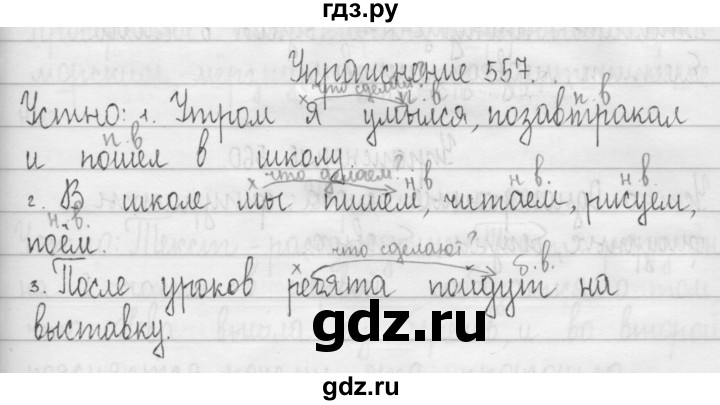 гдз.ру
Упражнение 557.
что сделал?
п.в п.в
Устно: 1. Утром я умылся, позавтракал
п.в
и пошёл в школу.
что делаем?
н.в н.в. н.в.
2. В школе мы пишем, читаем, рисуем,
н.в.
поём.
что сделают?
б.в.
3. После уроков ребята пойдут на
выставку.
gdz.ru
gdz.ru